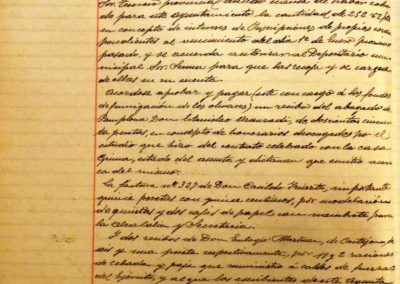 do para este Ayuntamiento la cantidad de 252'62 pts
en concepto de intereses de Inscripciones de propios corres
pondientes al vencimiento del dia 1º de Enero proximo
pasado, y se acuerda autorizar al Depositario mu
nicipal Sor. para que las recoja y se cargue
de ellas en su cuenta
Acordose aprobar y pagar (este con cargo á los fondos
de fumigación de los olivares) un recibo del abogado de
Pamplona Don Aranzadi, de doscientas cincuen
ta pesetas, en concepto de honorarios devengados por el
estudio que hizo del contrato celebrado con la casa
estado del asunto y dictamen que emitió acer
ca del mismo.
La factura nº 327 de Don Casildo Iriarte, importante
quince pesetas con quince centimos, por
de quintas y dos cajas de papel con membrete para
la Alcaldia y Secretaria.
Y dos recibos de Don Eulogio Martinez, de
seis y una peseta respectivamente, por y 2 raciones
de cebada y paja que suministró á caballos de fuerzas
del Ejército, y al que los escribientes de este Ayunta